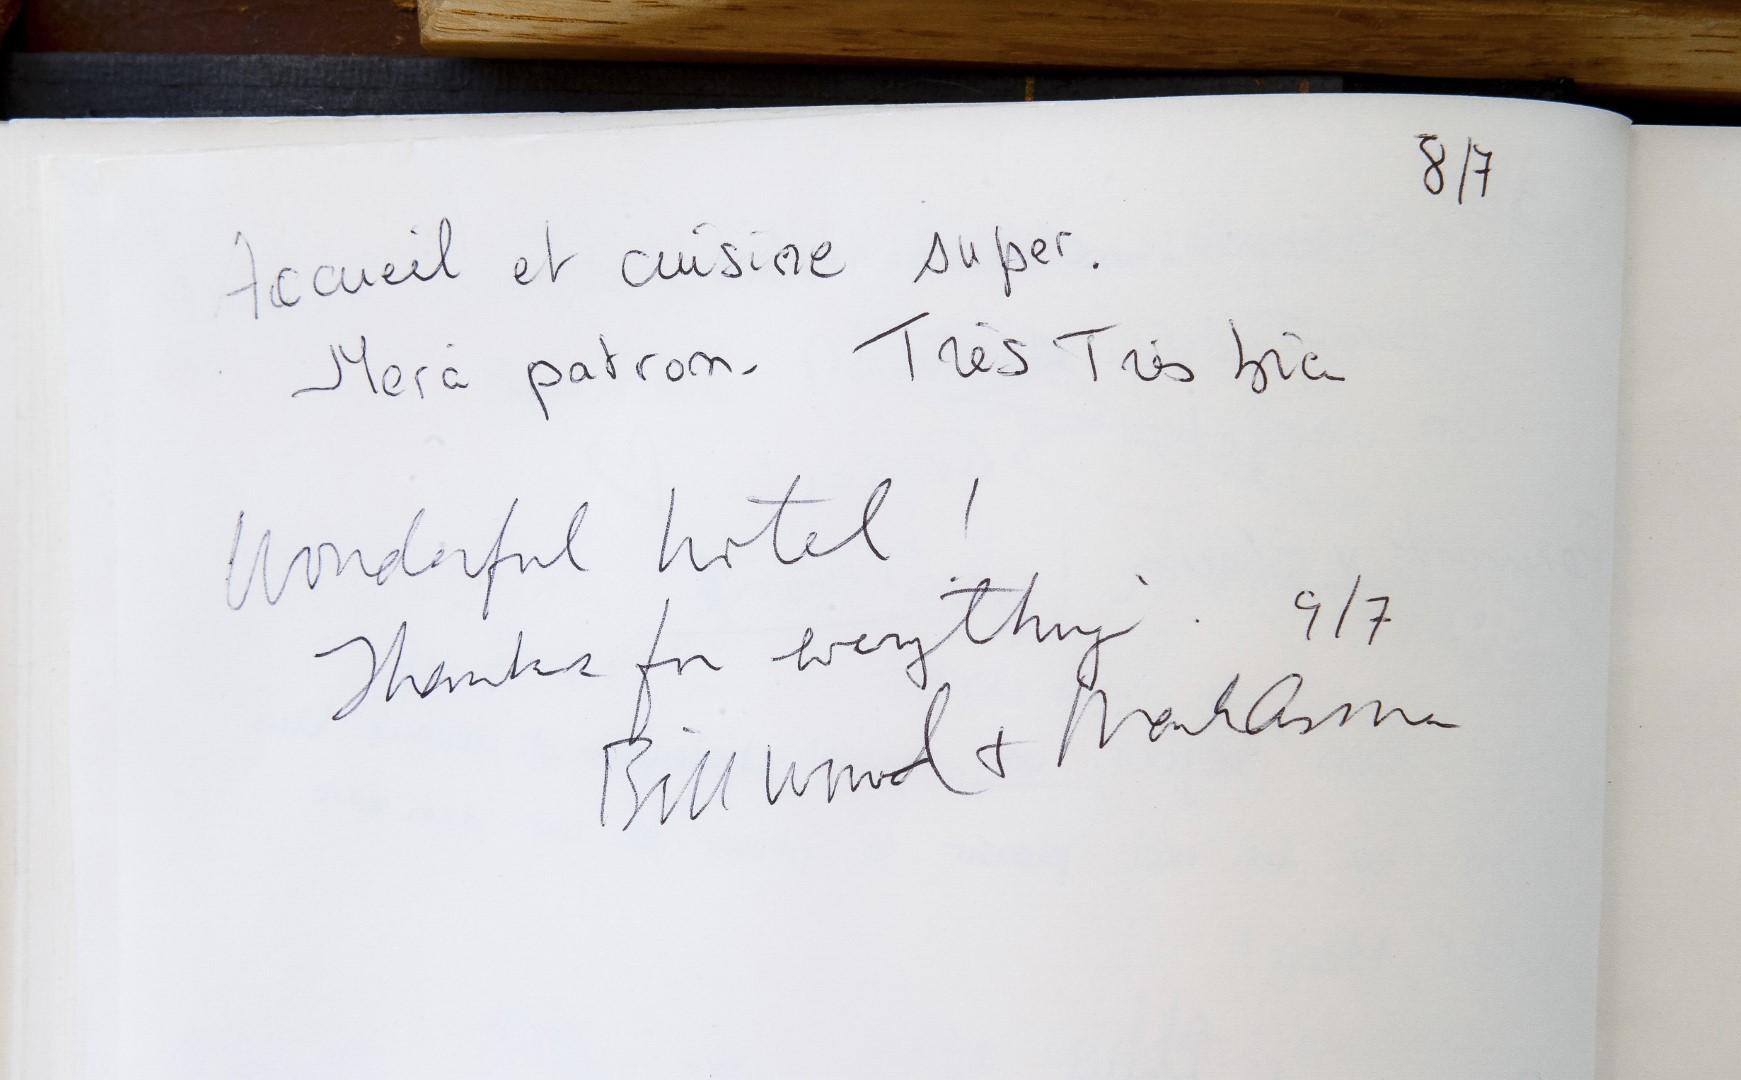 8/7
Accueil et cuisine super.
Merci patron. Très Très bien
Wonderful hotel !
Thanks for everything. 9/7
Bill Wood +